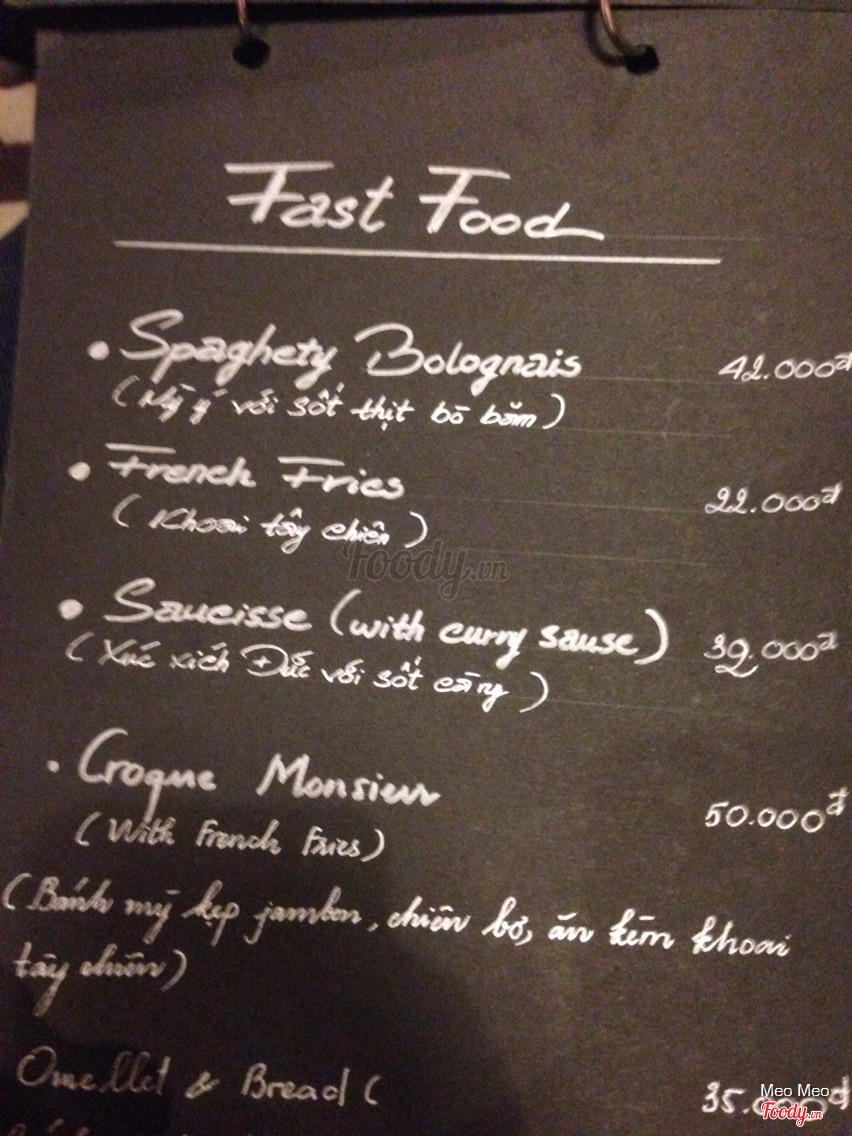 Fast Food
• Spaghety Bolognais 42.000đ
(Mỳ ý với sốt thịt bò băm)
• French Fries 22.000đ
(Khoai tây chiên)
Foody.vn
• Saucisse (with curry sause) 39.000đ
(Xúc xích Đức với sốt càry)
• Croque Monsieur 50.000đ
(With French Fries)
(Bánh mỳ kẹp jambon, chiên bơ, ăn kèm khoai
tây chiên)
Omellet & Bread ( 35.000đ
Meo Meo
Foody.vn